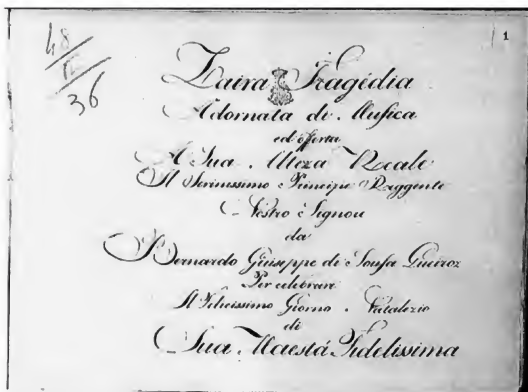 1
48
36
Zaira Tragédia
Adornata di Musica
ed offerta
A Sua Alteza Reale
Il Serinissimo Principe Raggente
Nostro Signou
da
Bernardo Giuseppe di Sousa Queiroz
Per celebrare
Il Felicissimo Giorno Natalizio
di
Sua Maestá Fidelissima